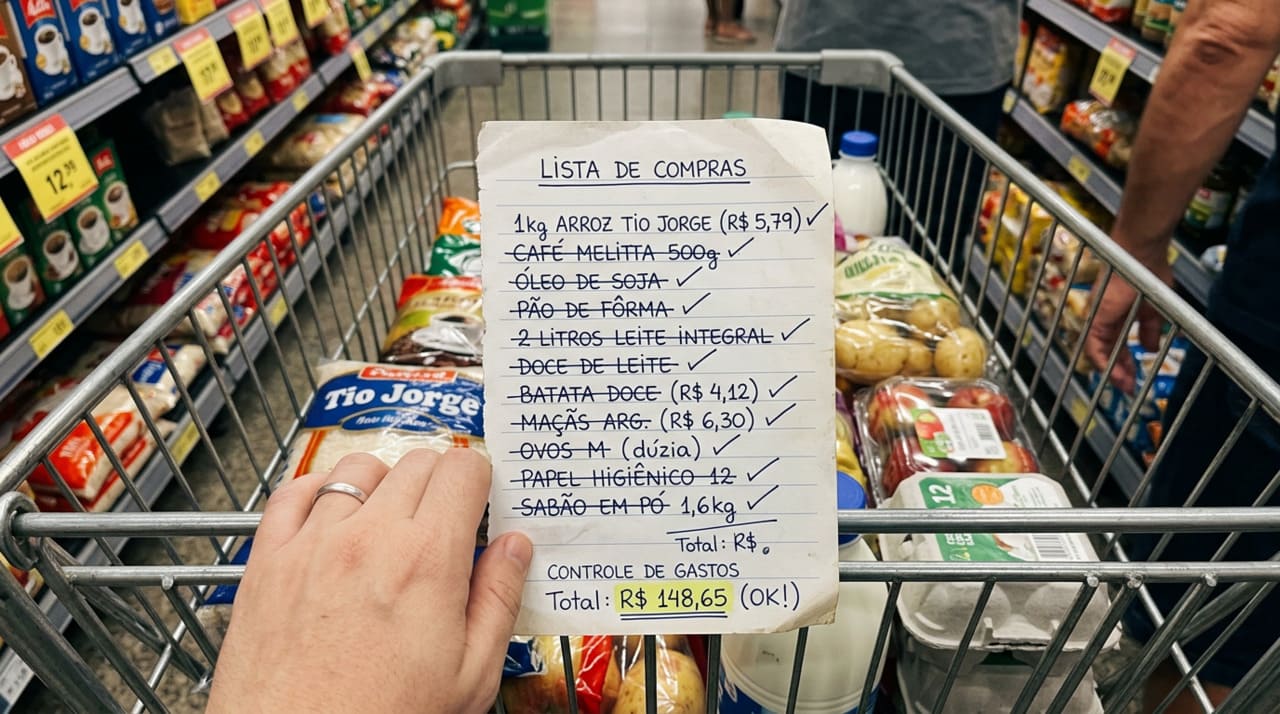 LISTA DE COMPRAS
1kg ARROZ TIO JORGE (R$ 5,79) ✓
CAFÉ MELITTA 500g ✓
ÓLEO DE SOJA ✓
PÃO DE FÔRMA ✓
2 LITROS LEITE INTEGRAL ✓
DOCE DE LEITE ✓
BATATA DOCE (R$ 4,12) ✓
MAÇÃS ARG. (R$ 6,30) ✓
OVOS M (dúzia) ✓
PAPEL HIGIÊNICO 12 ✓
SABÃO EM PÓ 1,6kg ✓
Total: R$.
CONTROLE DE GASTOS
Total: R$ 148,65 (OK!)
Tio Jorge
12